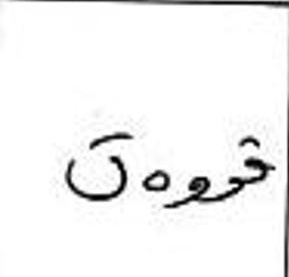 قووەت